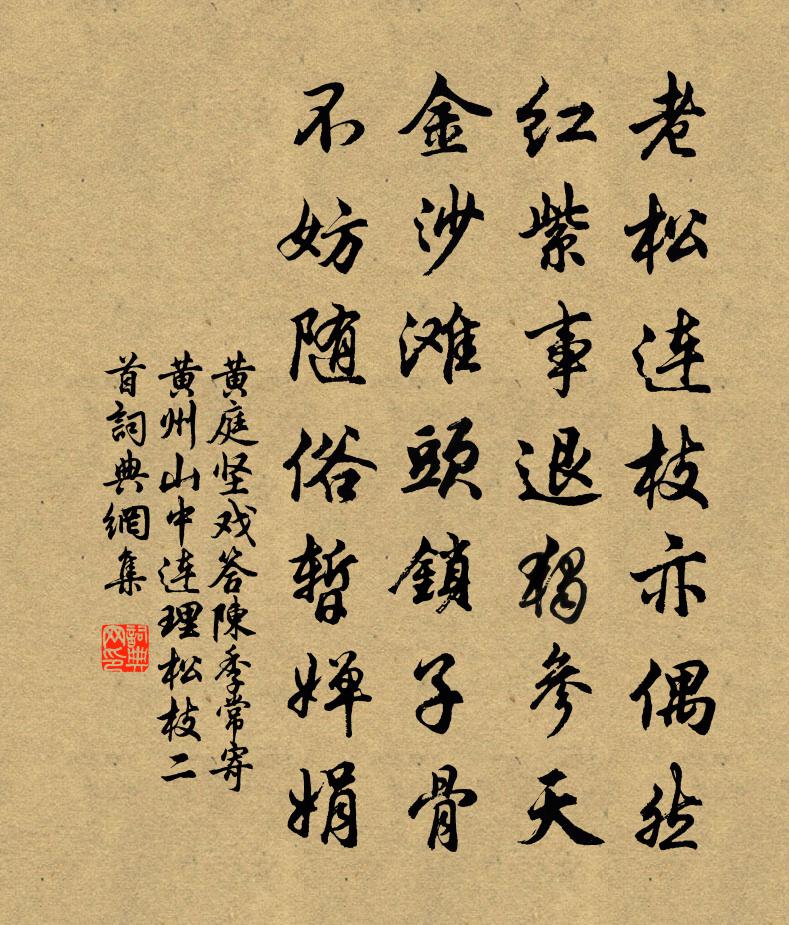 老松连枝亦偶然
红紫事退独参天
金沙滩頭鎖子骨
不妨随俗暫婵娟
黄庭坚戏答陳季常寄
黄州山中连理松枝二
首詞典網集
詞典网印